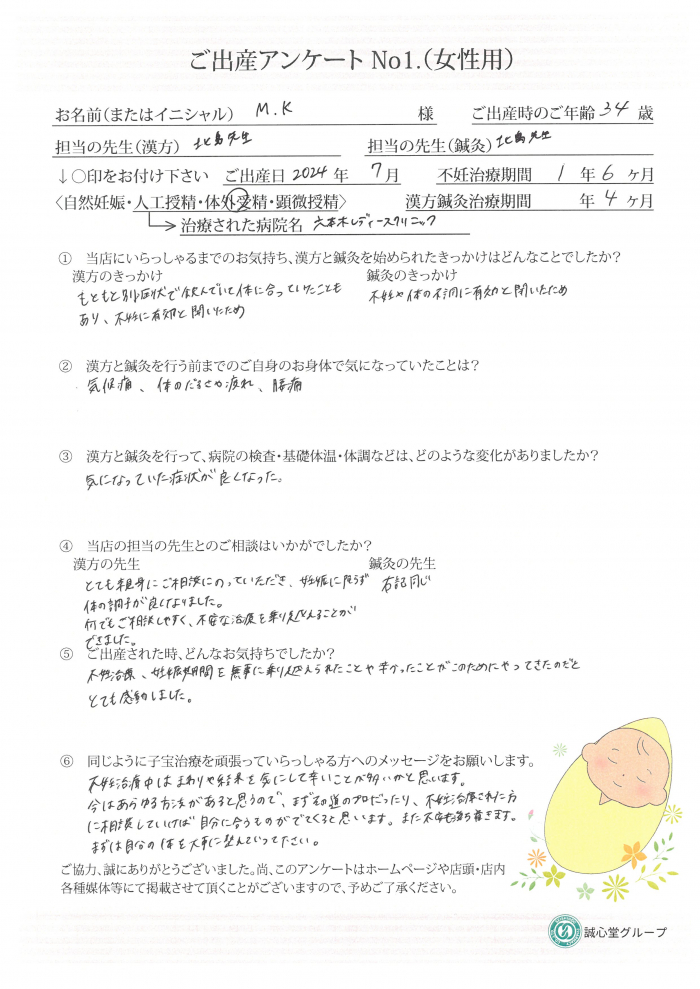 ご出産アンケート No1.(女性用)
お名前(またはイニシャル) M.K 様 ご出産時のご年齢 34 歳
担当の先生(漢方) 北島先生 担当の先生(鍼灸) 北島先生
↓○印をお付け下さい ご出産日 2024 年 7 月 不妊治療期間 1 年 6 ヶ月
〈自然妊娠・人工授精・体外受精・顕微授精〉 漢方鍼灸治療期間 年 4 ヶ月
治療された病院名 六本木レディースクリニック
① 当店にいらっしゃるまでのお気持ち、漢方と鍼灸を始められたきっかけはどんなことでしたか?
漢方のきっかけ 鍼灸のきっかけ
もともと別症状で飲んでいて体に合っていたことも 不妊や体の不調に有効と聞いたため
あり、不妊に有効と聞いたため
② 漢方と鍼灸を行う前までのご自身のお身体で気になっていたことは?
気保痛、体のだるさや疲れ、腰痛
③ 漢方と鍼灸を行って、病院の検査・基礎体温・体調などは、どのような変化がありましたか?
気になっていた症状が良くなった。
④ 当店の担当の先生とのご相談はいかがでしたか?
漢方の先生 鍼灸の先生
とても親身にご相談にのっていただき、妊娠に限らず 右記同じ
体の調子が良くなりました。
何でもご相談しやすく、不安な治療を乗り越えることが
できました。
⑤ ご出産された時、どんなお気持ちでしたか?
不妊治療、妊娠期間を無事に乗り越えられたことや辛かったことがこのためにやってきたのだと
とても感動しました。
⑥ 同じように子宝治療を頑張っていらっしゃる方へのメッセージをお願いします。
不妊治療中はまわりや結果を気にして辛いことが多いかと思います。
今はあらゆる方法があると思うので、まずその道のプロだったり、不妊治療された方
に相談していけば自分に合うものがでてくると思います。また不安も落ち着きます。
まずは自分の体を大事に
ご協力、誠にありがとうございました。尚、このアンケートはホームページや店頭・店内
各種媒体等にて掲載させて頂くことがございますので、予めご了承ください。
誠心堂グループ